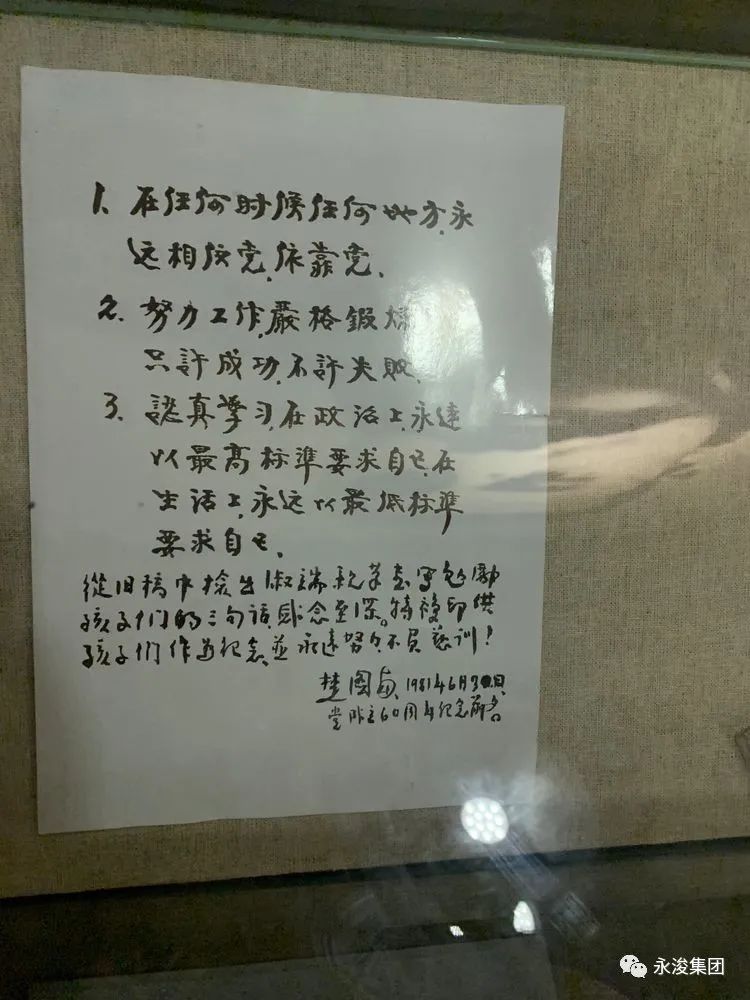 1. 在任何时候任何地方,永
远相信党,依靠党.
2. 努力工作,嚴格鍛煉
只許成功,不許失敗.
3. 認真学习,在政治上,永遠
以最高标準要求自己,在
生活上,永远以最低标準
要求自己.
從旧稿中檢出淑端親笔写勉勵
孩子们的三句话,感念至深。特複印供
孩子们作为纪念,並永遠努力不負慈训!
楚图南 1981年6月30日
党成立60周年纪念前夕
永浚集团